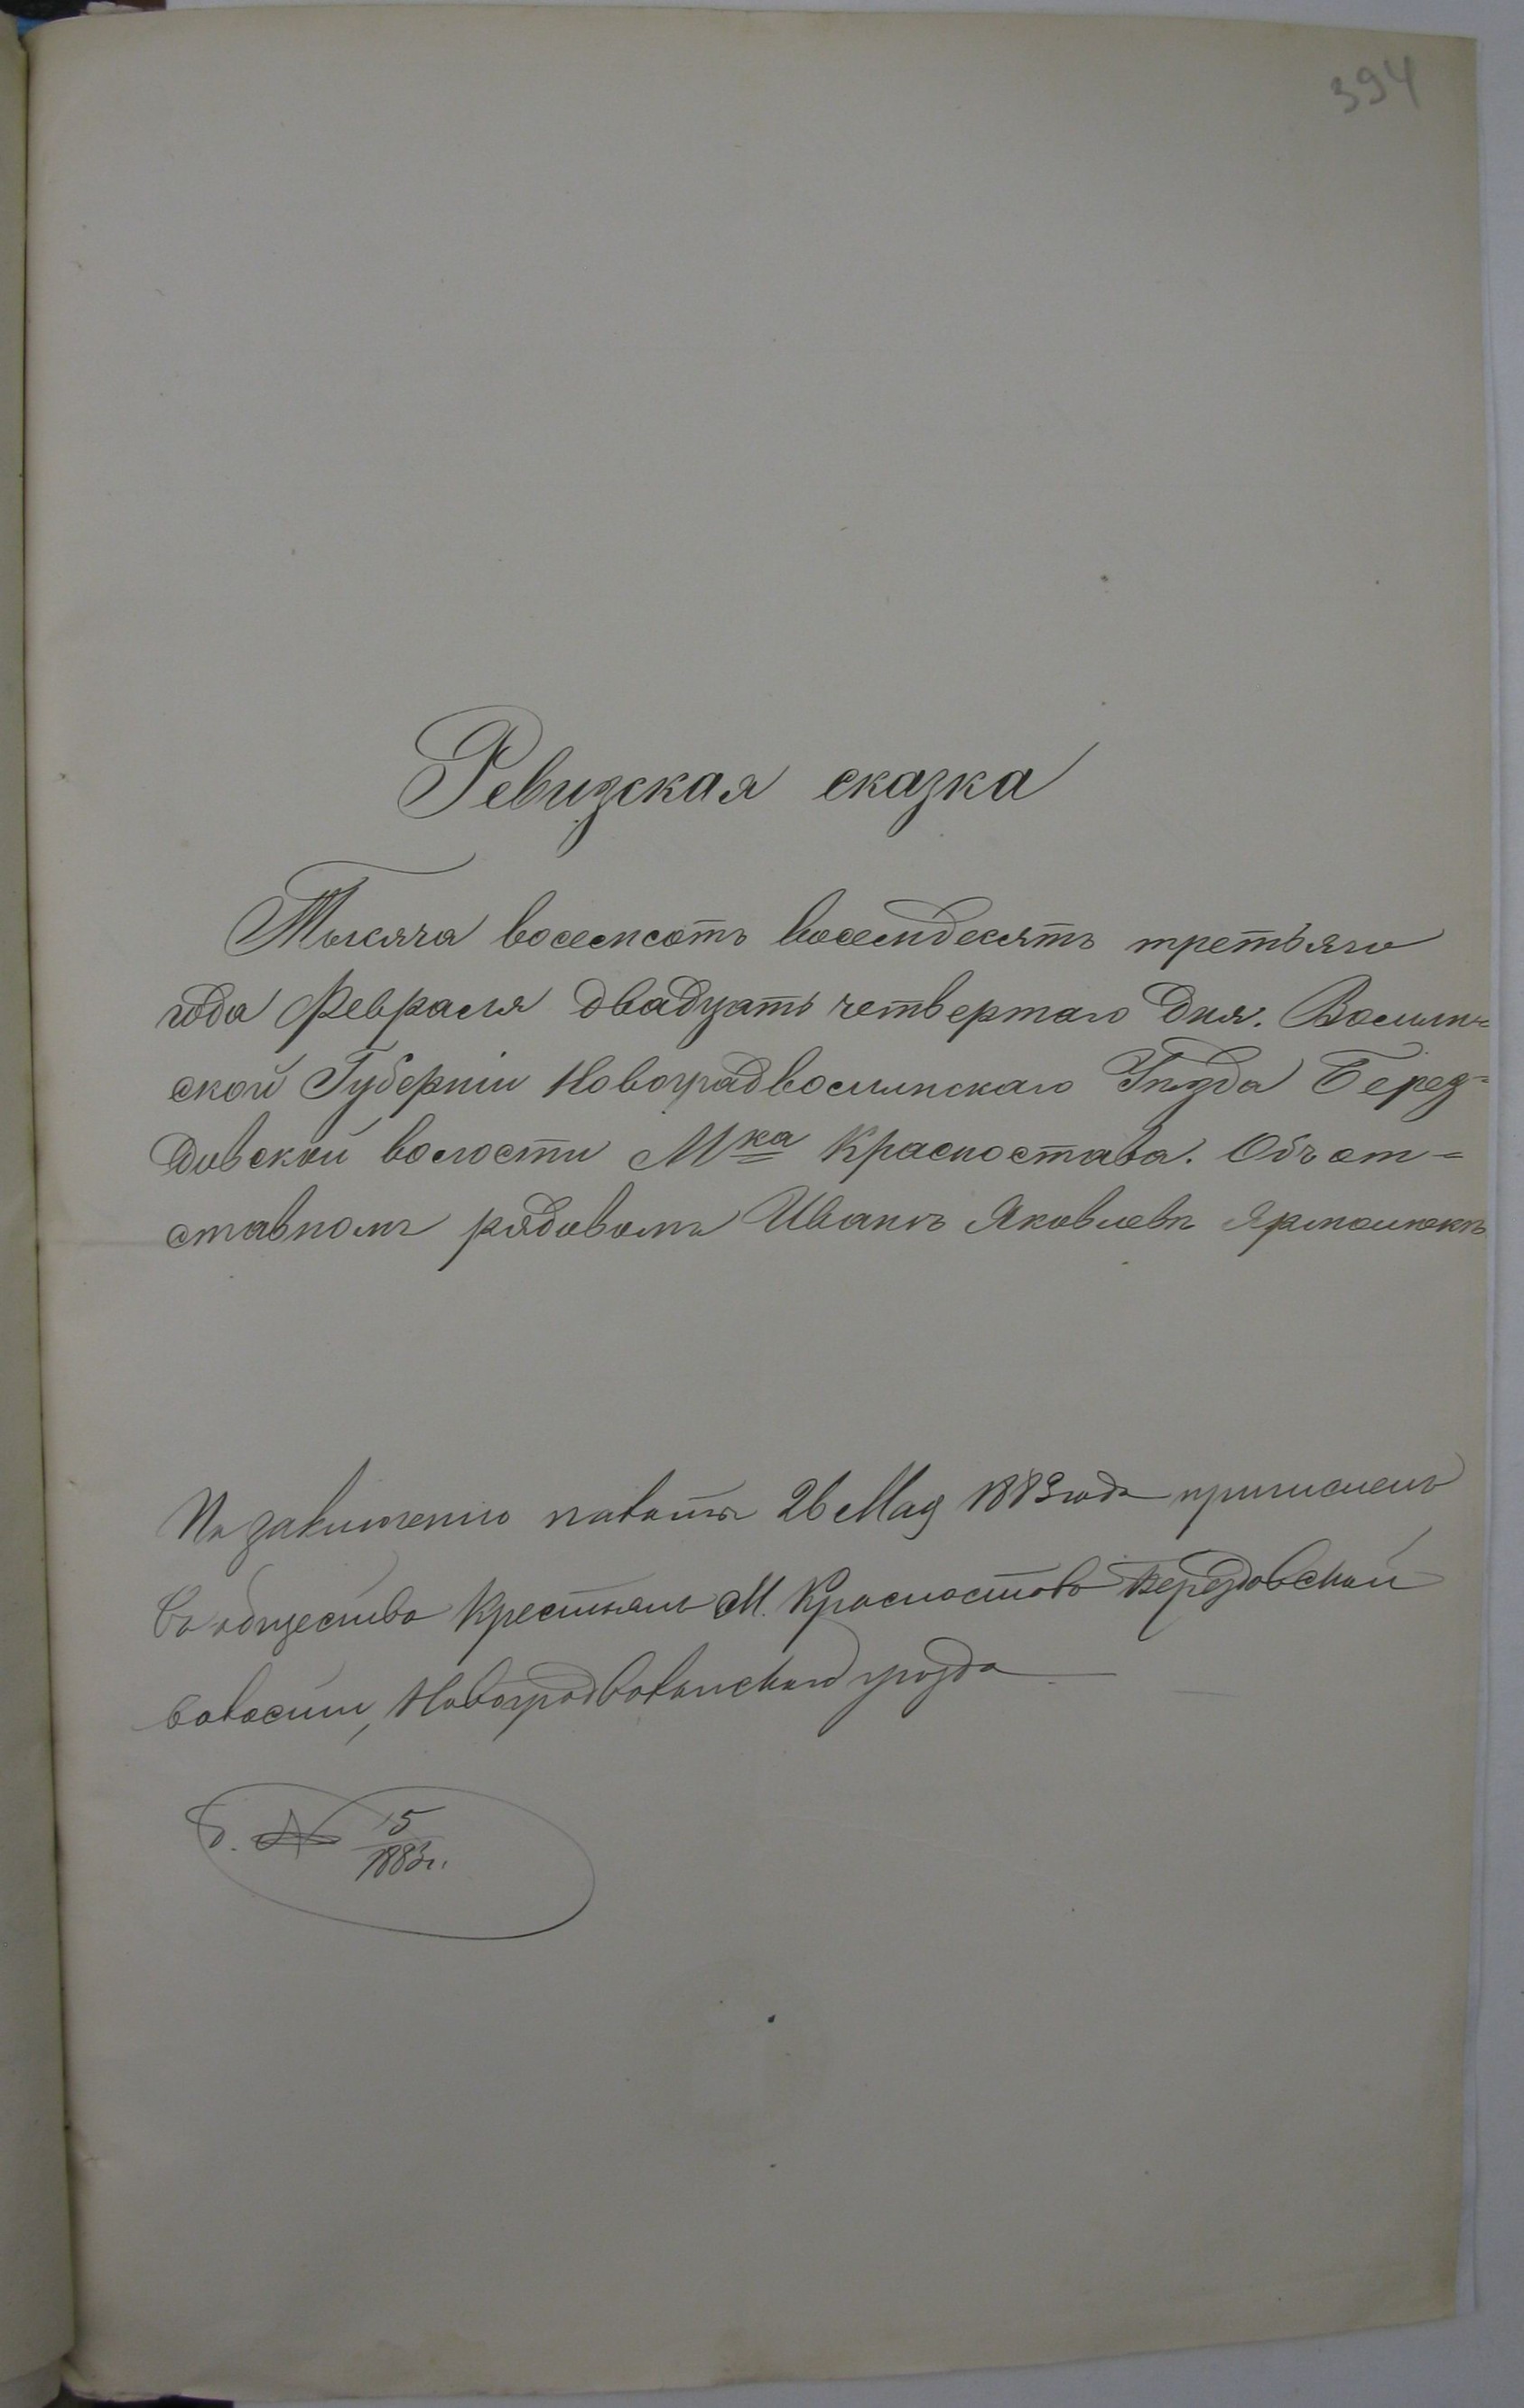 394
Ревизская сказка
Тысяча восемсотъ восемдесятъ третьяго
года Февраля двадцать четвертаго дня. Волын=
ской Губерніи Новоградволынскаго Уѣзда Берез=
довской волости Мка Красностава. Объ от=
ставномъ рядовомъ Иванѣ Яковлевѣ Ярмолюкѣ
По заключенію палаты 26 Мая 1883 года причисленъ
въ общество крестьянъ М. Красностава Берездовской
волости, Новоградволынскаго уѣзда
д. № 15
1883 г.